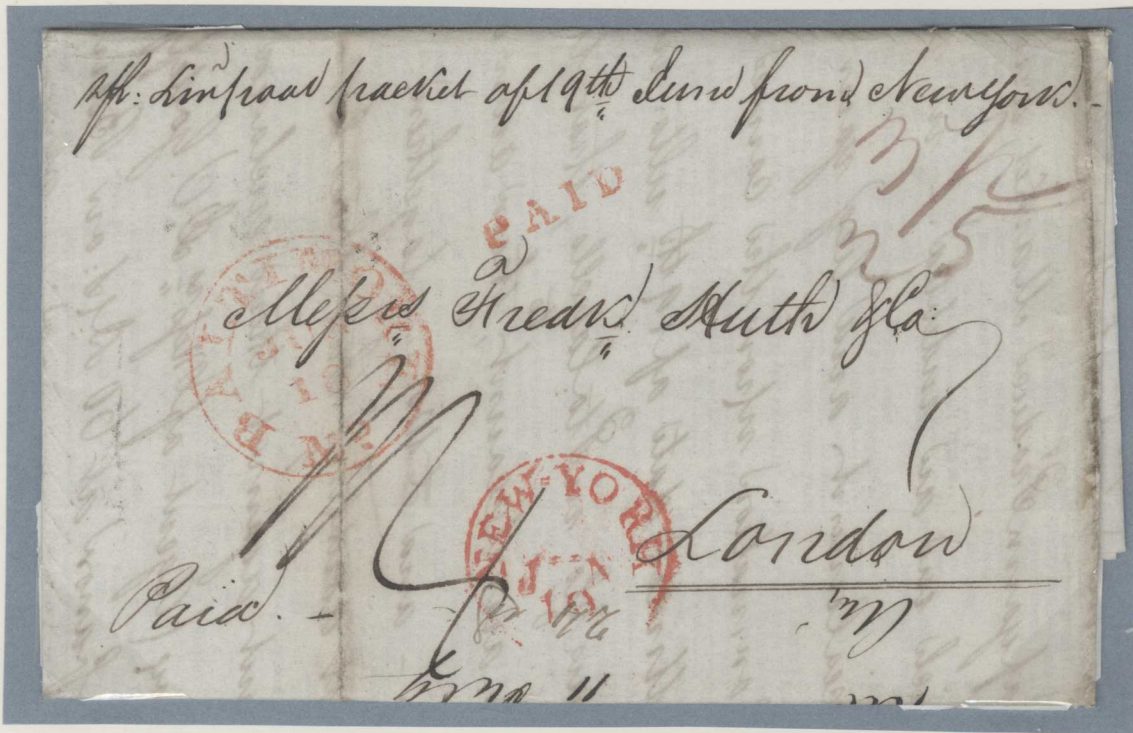 Liverpool packet of 19th June from New York.
3/
25
PAID
a
Messrs Fredk Huth & Co:
BALTIMORE
18
NEW-YORK
JUN
19
London
Paid. -